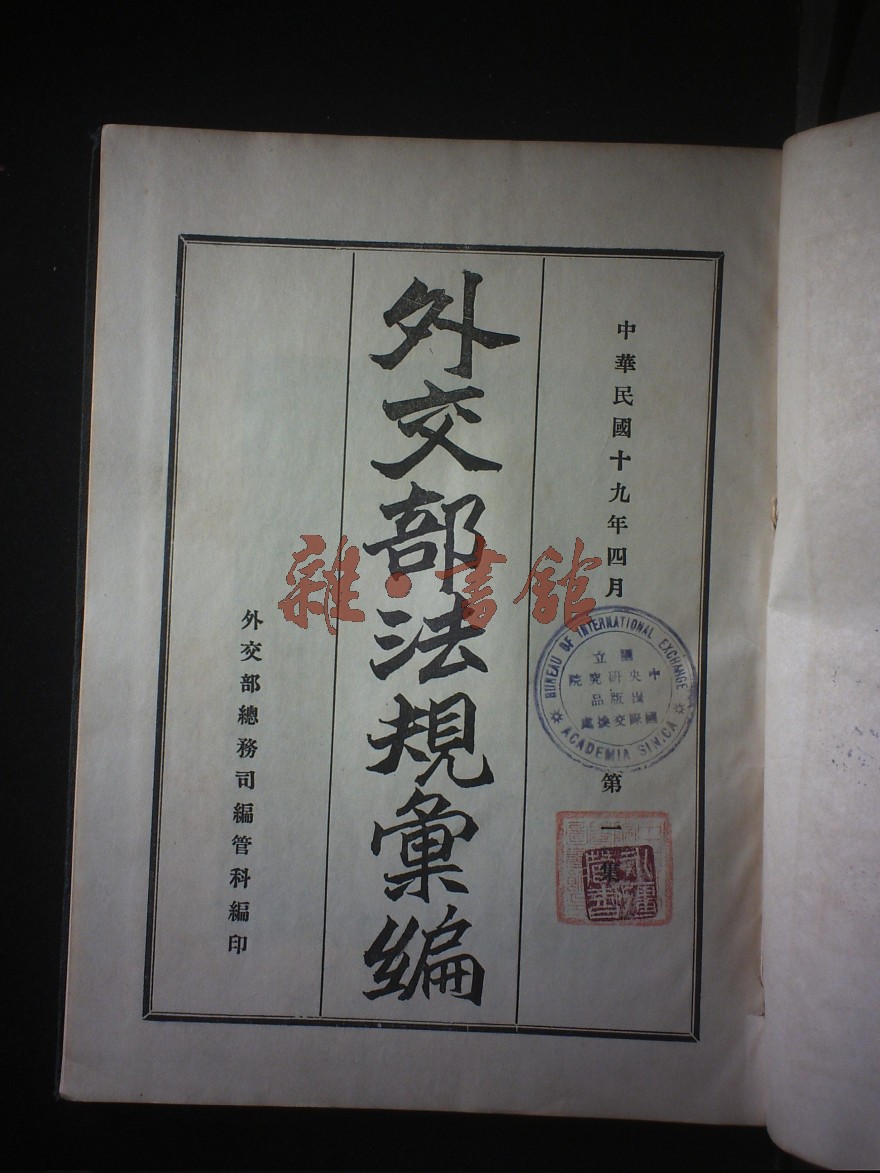 中華民國十九年四月
第一集
外交部法規彙編
外交部總務司編管科編印
BUREAU OF INTERNATIONAL EXCHANGE
國立
中央研究院
出版品
國際交換處
ACADEMIA SINICA
雜·書館